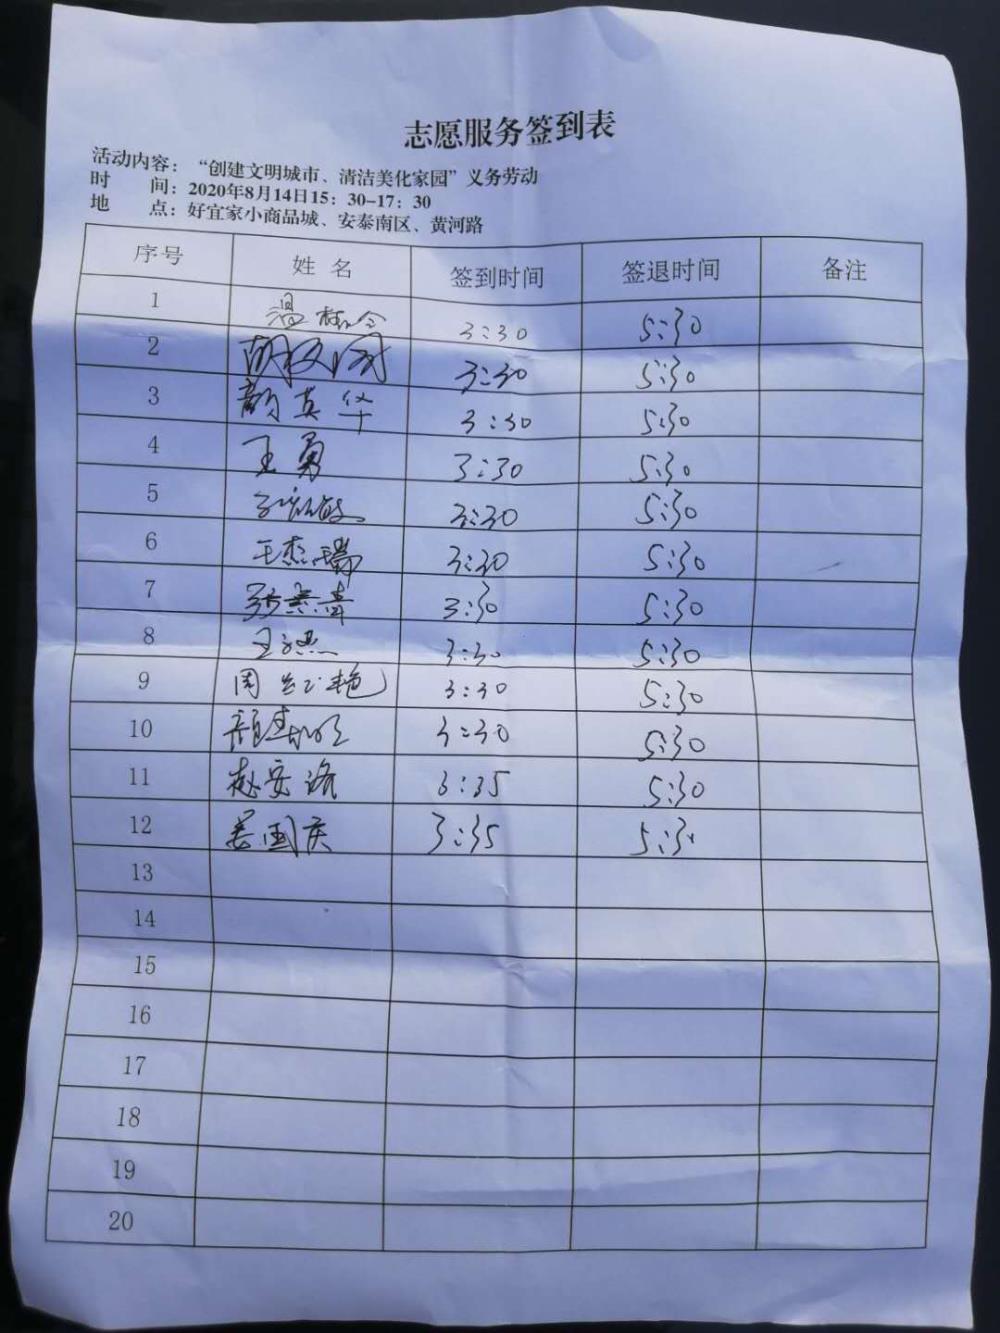 志愿服务签到表
活动内容：“创建文明城市、清洁美化家园”义务劳动
时 间：2020年8月14日15：30-17：30
地 点：好宜家小商品城、安泰南区、黄河路
序号 姓名 签到时间 签退时间 备注
1 3:30 5:30
2 3:30 5:30
3 颜英华 3:30 5:30
4 王勇 3:30 5:30
5 3:30 5:30
6 王杰瑞 3:30 5:30
7 3:30 5:30
8 王 3:30 5:30
9 周 艳 3:30 5:30
10 颜 3:30 5:30
11 赵安洛 3:35 5:30
12 姜国庆 3:35 5:3
13
14
15
16
17
18
19
20